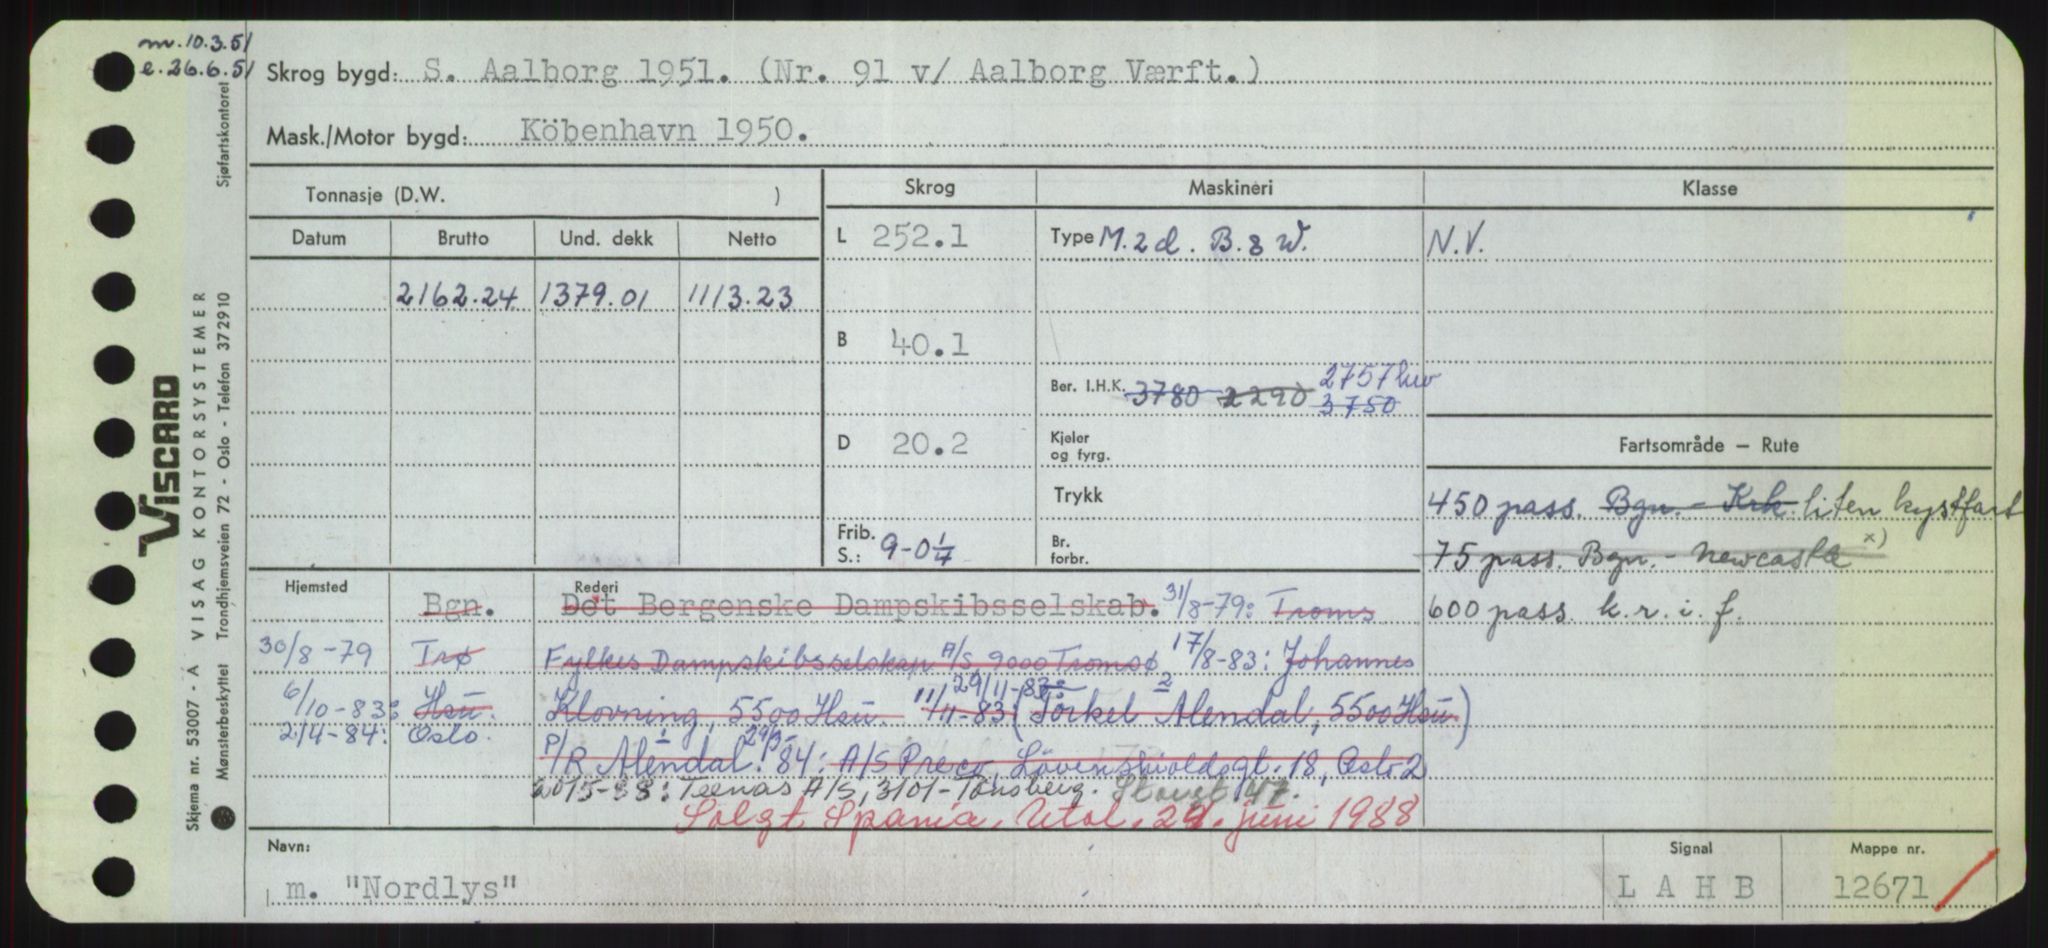 m. 10.3.51
e. 26.6.51
Skrog bygd: S. Aalborg 1951. (Nr. 91 v/ Aalborg Værft.)
Mask./Motor bygd: Köbenhavn 1950.
Tonnasje (D.W. ) Skrog Maskineri Klasse
Datum Brutto Und. dekk Netto L 252.1 Type M. 2 d. B. & W. N.V.
2162.24 1379.01 1113.23
B 40.1
Ber. I.H.K. 3780 2290 2757 hw
3750
D 20.2 Kjeler og fyrg. Fartsområde – Rute
Trykk 450 pass. Bgn. - Krk. liten kystfart
Frib. S.: 9-0¼ Br. forbr. 75 pass. Bgn. - Newcastle x)
Hjemsted Rederi
Bgn. Det Bergenske Dampskibsselskab. 31/8-79: Troms 600 pass. k. r. i. f.
30/8-79 Trø Fylkes Dampskibsselskap A/S, 9000 Tromsø 17/8-83: Johannes
29/11-83: 2
6/10-83: Hsu. Klovning, 5500 Hsu. 11/11-83: (Torkel Alendal, 5500 Hsu)
2/4-84: Oslo. P/R Alendal. 29/3-84: A/S Preco, Lövenskioldsgt. 18, Oslo 2
15-88: Teenas A/S, 3101-Tønsberg. Storgt. 47.
Solgt Spania. Utsl. 29. juni 1988
Navn: Signal Mappe nr.
m. "Nordlys" L A H B 12671
VISCARD
Skjema nr. 53007 - A VISAG KONTORSYSTEMER Sjøfartskontoret
Mønsterbeskyttet Trondhjemsveien 72 - Oslo - Telefon 372910